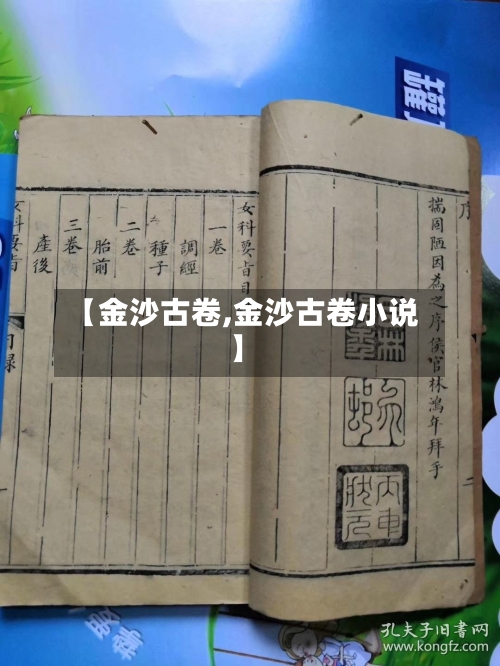 序
揣固陋因為之序侯官林鴻年拜手
二
丙申
狀元
女科要旨目
一卷
調經
種子
二卷
胎前
三卷
產後
女科要旨
目錄
【金沙古卷,金沙古卷小说
】
孔夫子旧书网
www.kongfz.com